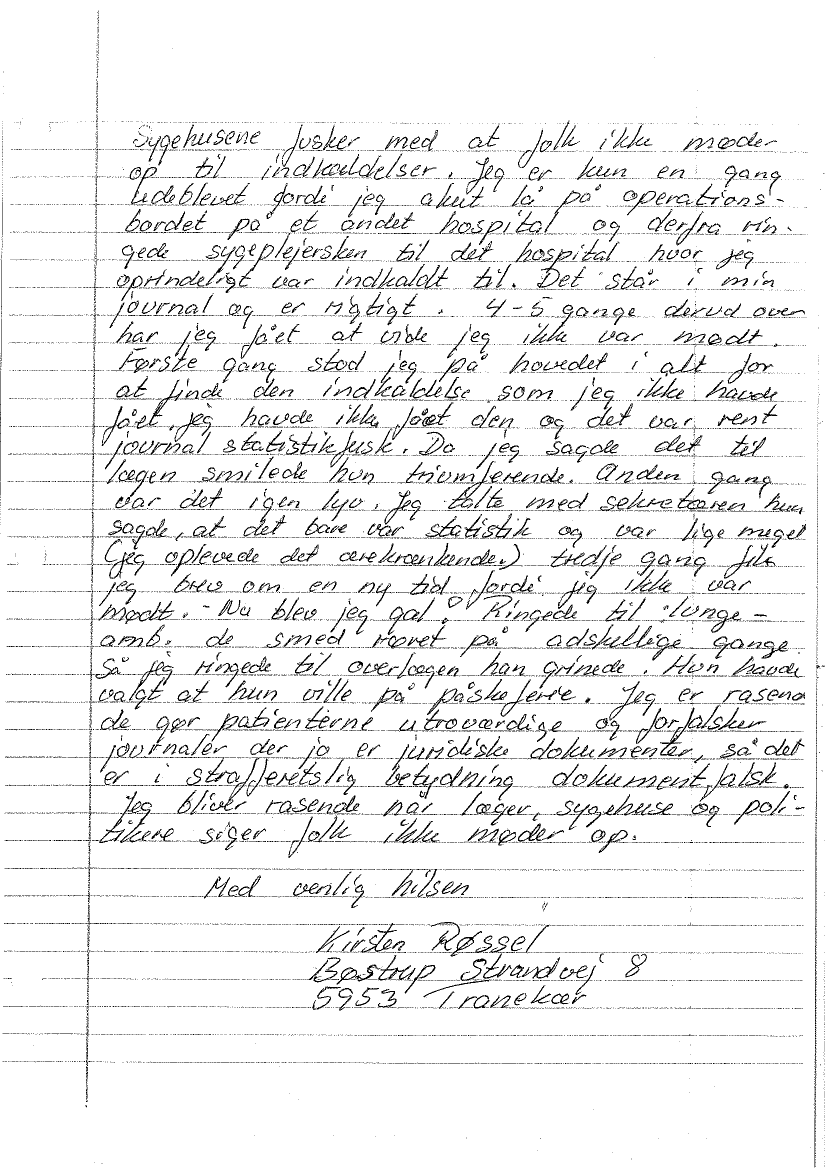 Sygehusene fusker med at folk ikke møder
op til indkaldelser. Jeg er kun en gang
udeblevet fordi jeg akut lå på operations-
bordet på et andet hospital og derfra rin-
gede sygeplejersken til det hospital hvor jeg
oprindeligt var indkaldt til. Det står i min
journal og er rigtigt. 4-5 gange derud over
har jeg fået at vide jeg ikke var mødt.
Første gang stod jeg på hovedet i alt for
at finde den indkaldelse som jeg ikke havde
fået, jeg havde ikke fået den og det var rent
journal statistikfusk. Da jeg sagde det til
lægen smilede hun triumferende. Anden gang
var det igen lyv. Jeg talte med sekretæren hun
sagde, at det bare var statistik og var lige meget
(jeg oplevede det ærekrænkende.) tredje gang fik
jeg brev om en ny tid fordi jeg ikke var
mødt. - Nu blev jeg gal! Ringede til lunge-
amb. de smed røret på adskellige gange.
Så jeg ringede til overlægen han grinede. Hun havde
valgt at hun ville på påskeferie. Jeg er rasend
de gør patienterne utroværdige og forfalsker
journaler der jo er juridiske dokumenter, så det
er i strafferetslig betydning dokumentfalsk.
Jeg bliver rasende når læger, sygehuse og poli-
tikere siger folk ikke møder op.
Med venlig hilsen
Kirsten Røssel
Bøstrup Strandvej 8
5953 Tranekær